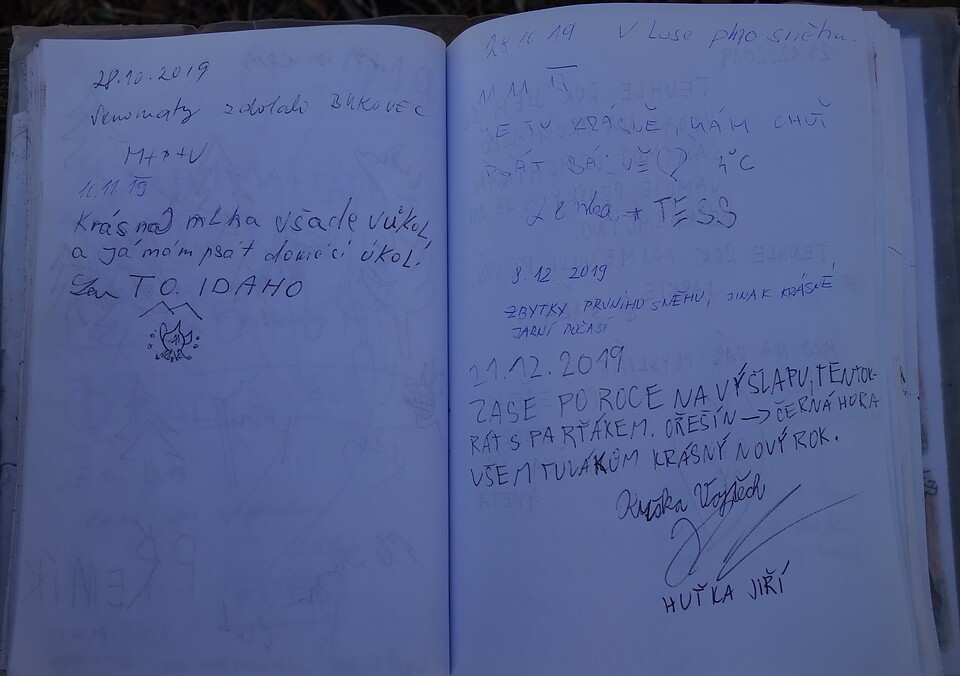 28.10.2019
zdolali BUKOVEC
M+P+V
11.11 19
Krásná mlha všade vůkol
a já mám psát domácí úkol!
T.O. IDAHO
28 10 19 V Luse plno sněhu.
11 11
JE TU KRÁSNĚ, MÁM CHUŤ
PSÁT BÁ (?) 4°C
Lenka + TESS
8.12 2019
ZBYTKY PRVNIHO SNĚHU, JINAK KRÁSNÉ
JARNÍ POČASÍ
21.12.2019
ZASE PO ROCE NA VÝŠLAPU, TENTOK-
RÁT S PARŤÁKEM. OŘEŠÍN → ČERNÁ HORA
VŠEM TULÁKŮM KRÁSNÝ NOVÝ ROK.
Vojtěch
HUŤKA JIŘÍ